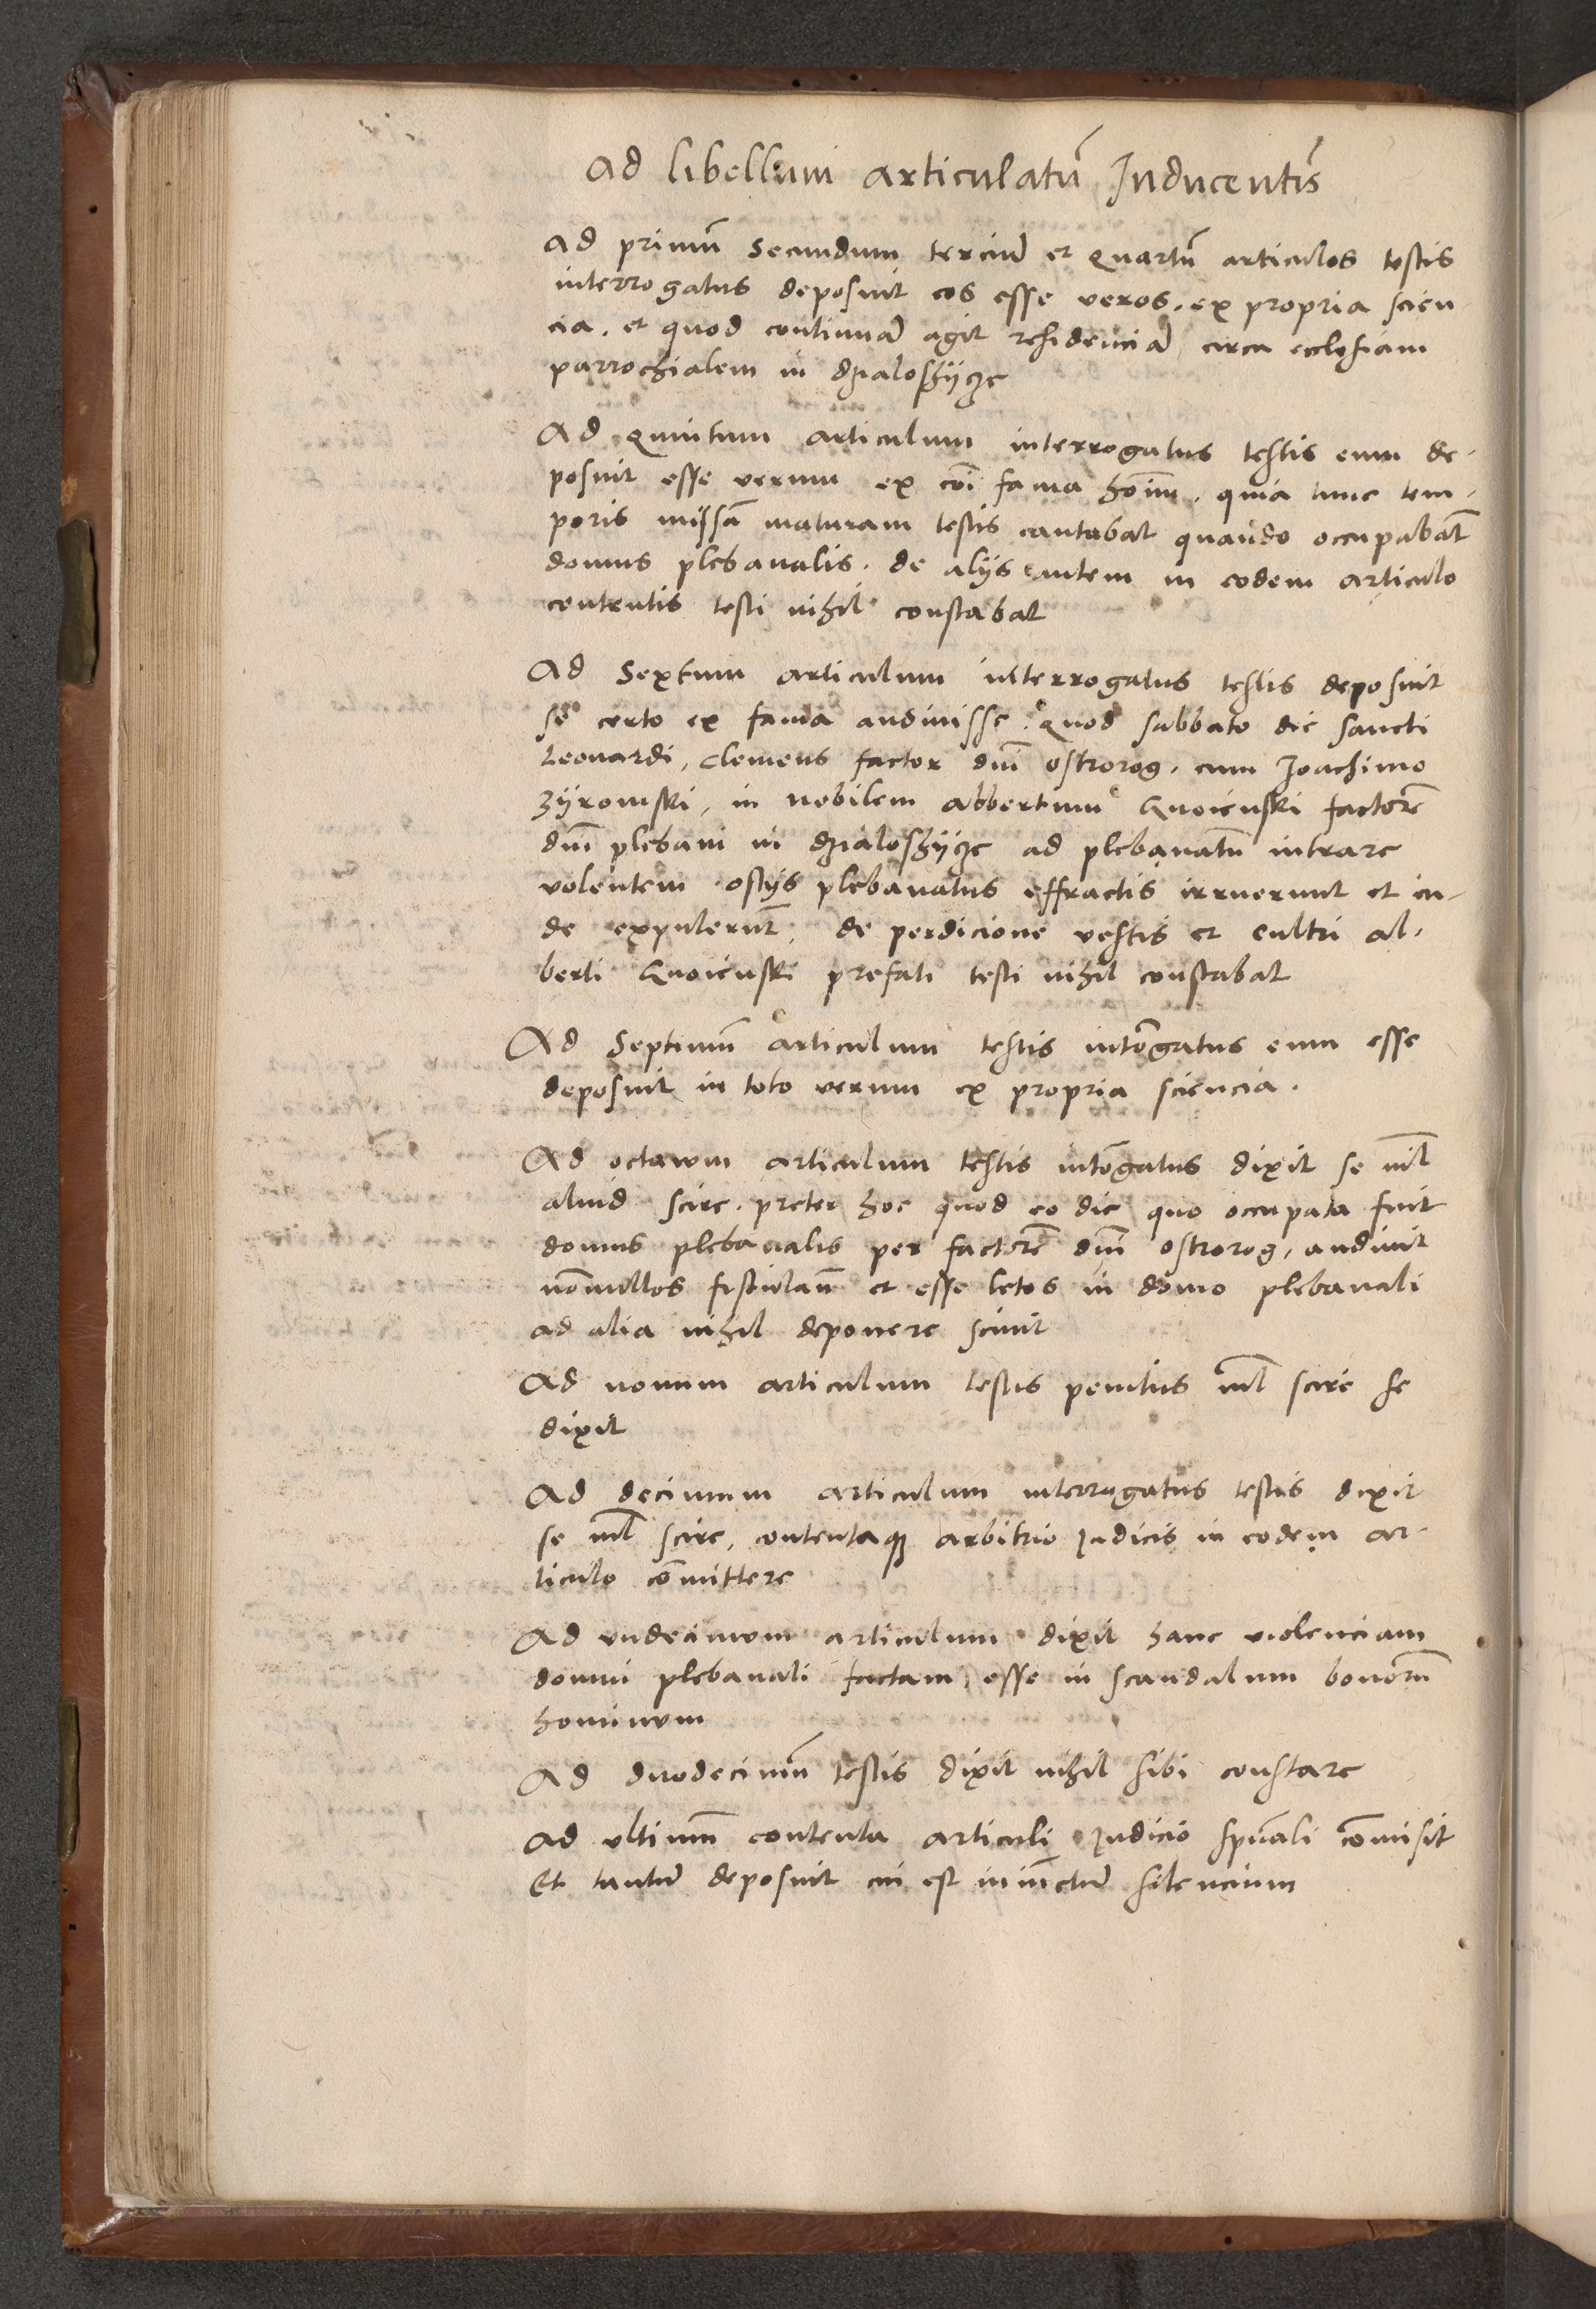 Ad libellum articulatū Inducentis
Ad primū Secundum terciū et Quartū articulos testis
interrogatus deposuit eos esse veros. ex propria scien
cia. et quod continuā agit residenciā circa ecclesiam
parrochialem in dzialoschÿcze
Ad Quintum articulum interrogatus testis eum de-
posuit esse verum ex cōi fama hōim. quia tunc tem-
poris missā maturam testis cantabat quando occupabat̄
domus plebanalis. de alijs autem in eodem articulo
contentis testi nihil constabat
Ad Sextum articulum interrogatus testis deposuit
se certo ex fama audiuisse. Quod sabbato die sancti
Leonardi, Clemens factor dnī ostrorog, cum Joachimo
Zÿrowski, in nobilem albertum Gnoienski factorē
dnī plebani in dzialoschÿcze ad plebanatū intrare
volentem ostijs plebanatus effractis irruerunt et in-
de expulerūt, de perdicione vestis et cultri al-
berti Gnoienski prefati testi nihil constabat
Ad Septimū articulum testis intēogatus eum esse
deposuit in toto verum ex propria sciencia.
Ad octauum articulum testis intēogatus dixit se nīl
aliud scire. preter hoc quod eo die quo occupata fuit
domus plebanalis per factorē dnī ostrorog, audiuit
nōnullos fistulan̄ et esse letos in domo plebanali
ad alia nihil deponere sciuit
Ad nonum articulum testis penitus nīl scire se
dixit
Ad decimum articulum interrogatus testis dixit
se nīl scire, contentaqꝫ arbitrio Judicis in eodem ar-
ticulo cōmittere
Ad vndecimum articulum dixit hanc violenciam
domui plebanali factam esse in scandalum bonorū
hominum
Ad duodecimū testis dixit nihil sibi constare
Ad vltimū contenta articuli Judicio spūali cōmisit
Et tantū deposuit cui est iniūctū silencium